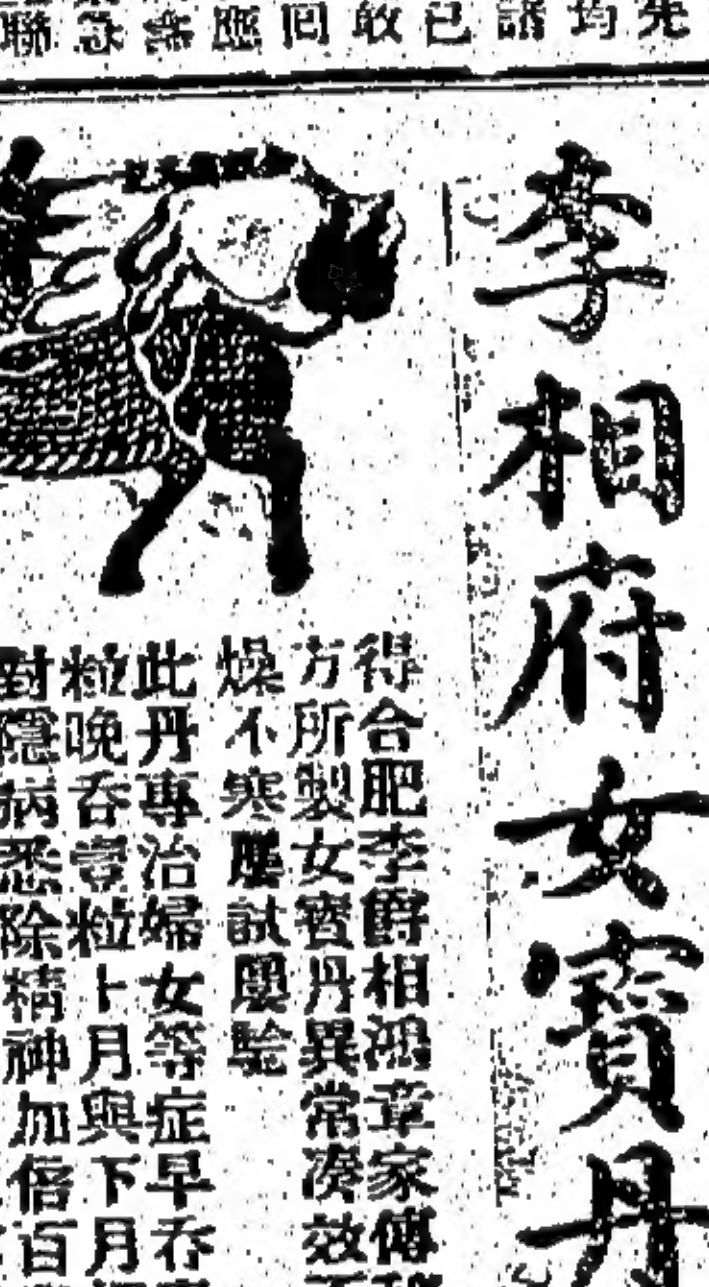 先均諸已敢回應無
李相府女寶丹
得合肥李爵相鴻章家傳
方所製女寶丹異常湊效
燥不寒屢試屢驗
此丹專治婦女等症早吞
粒晚吞壹粒上月與下月
對隱病悉除精神加倍百